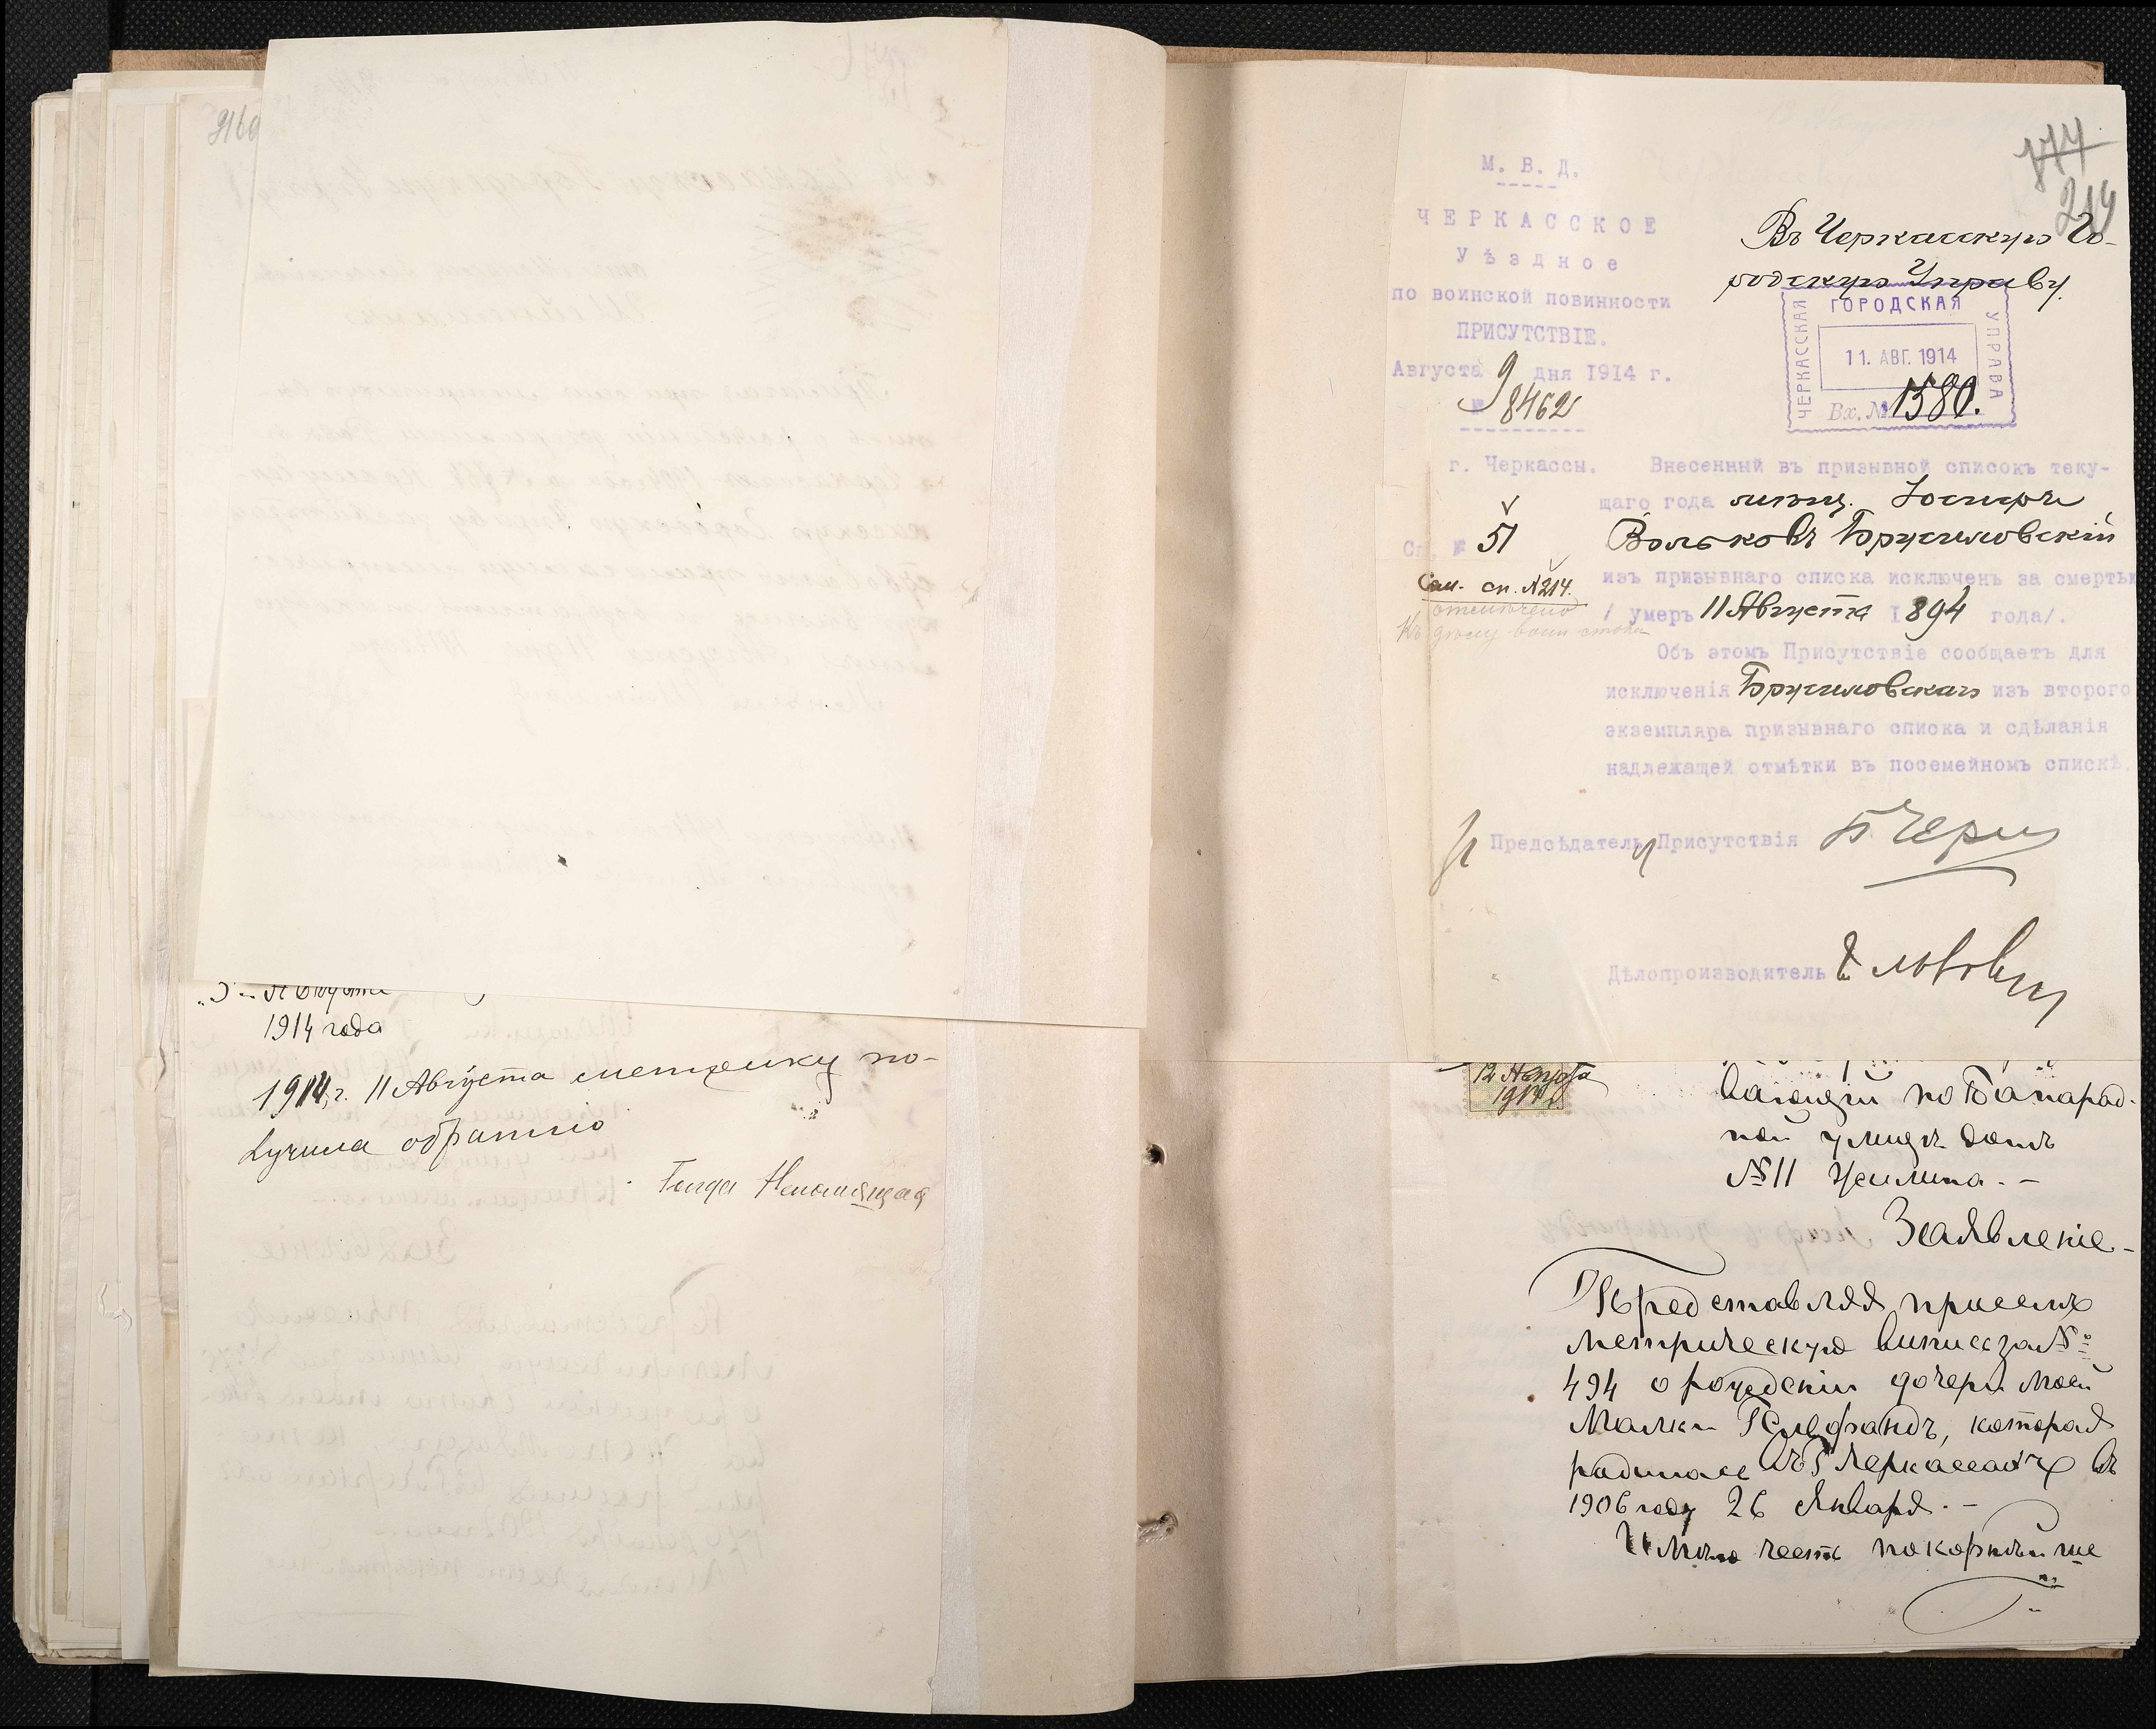 916
"5" Августа
1914 года
1914 г. 11 Августа метрику по-
лучила обратно
Голда
177
214
М. В. Д.
ЧЕРКАССКОЕ
Уѣздное
по воинской повинности
ПРИСУТСТВІЕ.
Августа 9 дня 1914 г.
№ 8462
г. Черкассы.
Въ Черкасскую Го-
родскую Управу.
ЧЕРКАССКАЯ ГОРОДСКАЯ УПРАВА
11. АВГ. 1914
Вх. № 1580.
Внесенный въ призывной списокъ теку-
щаго года мѣщ. Іосифъ
Сп. № 51
Вольковъ Бруcиловскій
Сем. сп. № 214.
отмѣчено
изъ призывнаго списка исключенъ за смертью
/ умеръ 11 Августа 1894 года/.
Объ этомъ Присутствіе сообщаетъ для
исключенія Брусиловскаго изъ второго
экземпляра призывнаго списка и сдѣланія
надлежащей отмѣтки въ посемейномъ спискѣ.
Предсѣдатель Присутствія
Дѣлопроизводитель
12 Августа
1914 г.
вающій по
ной улицѣ домъ
№ 11
Заявленіе.-
Представляя присемъ
метрическую выпись за №:
494 о рожденіи дочери моей
Малки Гельфандъ, которая
родилась въ г Черкассахъ въ
1906 году 26 Января.-
Имѣю честь покорнѣйше